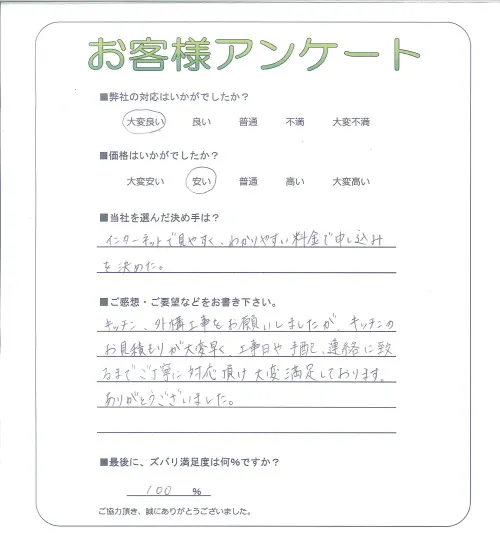 お客様アンケート
■弊社の対応はいかがでしたか？
大変良い 良い 普通 不満 大変不満
■価格はいかがでしたか？
大変安い 安い 普通 高い 大変高い
■当社を選んだ決め手は？
インターネットで見やすく、わかりやすい料金で申し込み
を決めた。
■ご感想・ご要望などをお書き下さい。
キッチン、外構工事をお願いしましたが、キッチンの
お見積もりが大変早く、工事日や手配、連絡に致
るまでご丁寧に対応頂け大変満足しております。
ありがとうございました。
■最後に、ズバリ満足度は何%ですか？
100 %
ご協力頂き、誠にありがとうございました。